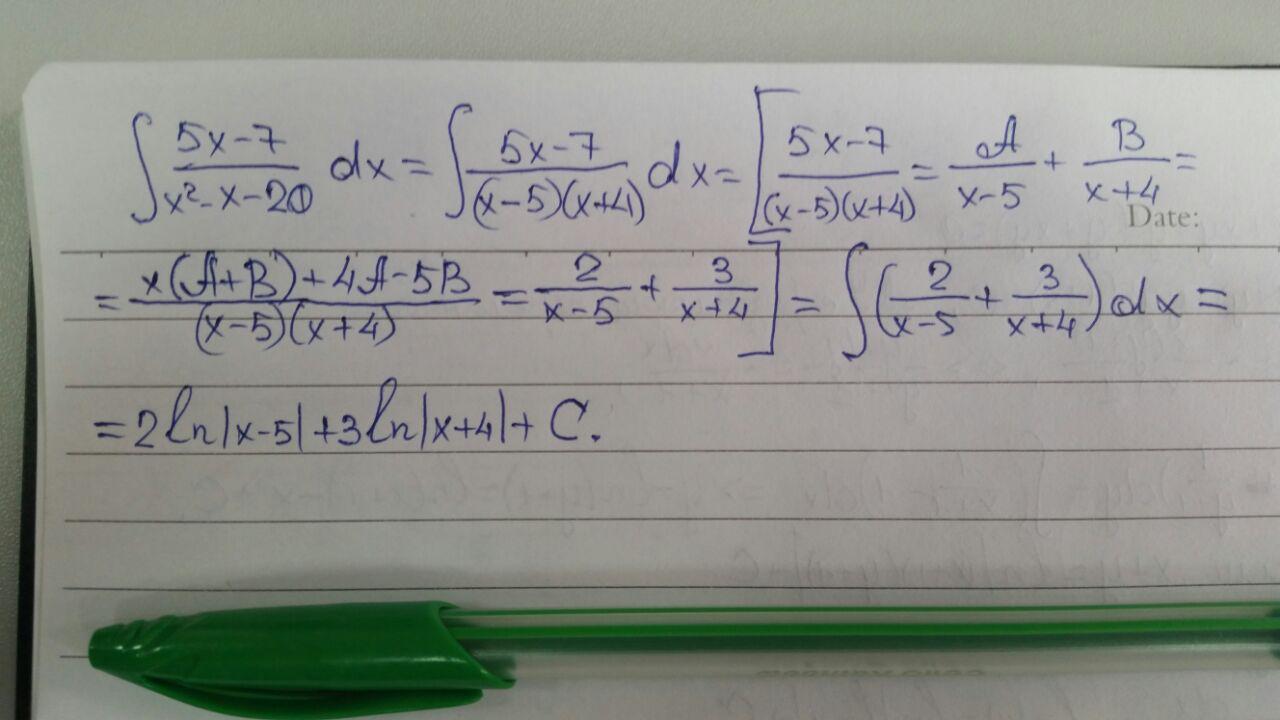 ∫ (5x-7)/(x²-x-20) dx = ∫ (5x-7)/((x-5)(x+4)) dx = [ (5x-7)/((x-5)(x+4)) = A/(x-5) + B/(x+4) =
Date:
= (x(A+B)+4A-5B)/((x-5)(x+4)) = 2/(x-5) + 3/(x+4) ] = ∫ (2/(x-5) + 3/(x+4)) dx =
= 2ln|x-5|+3ln|x+4|+ C.